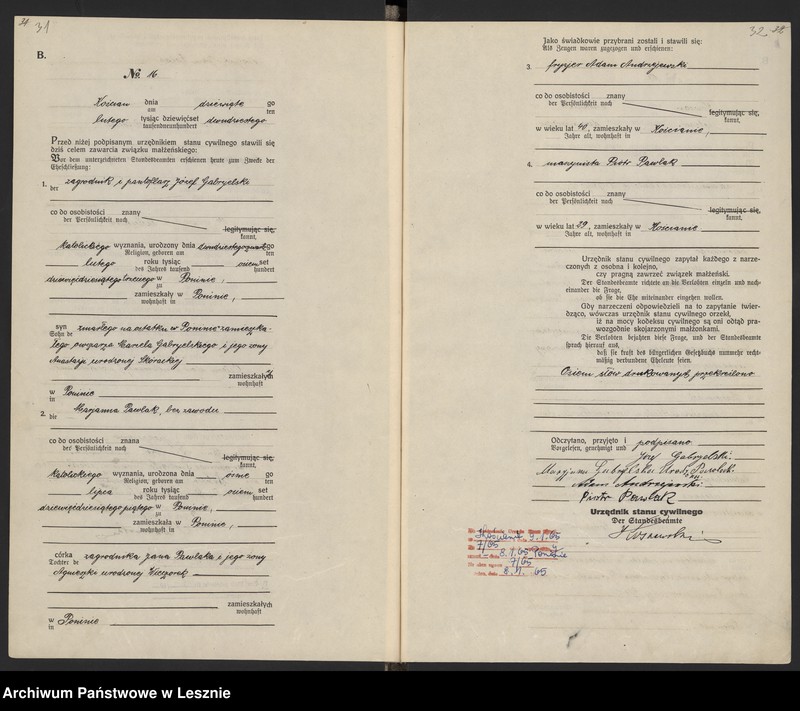 31
B.
No. 16
Kościan dnia dziewiąte go
am ten
lutego tysiąc dziewięćset dwudziestego
tausendneunhundert
Przed niżej podpisanym urzędnikiem stanu cywilnego stawili się
dziś celem zawarcia związku małżeńskiego:
Vor dem unterzeichneten Standesbeamten erschienen heute zum Zwecke der
Eheschließung:
1. zagrodnik i pantoflarz Józef Gabryelski
der
co do osobistości znany
der Persönlichkeit nach
legitymując się,
kannt,
katolickiego wyznania, urodzony dnia go
Religion, geboren am ten
lutego roku tysiąc osiem set
des Jahres tausend hundert
dziewięćdziesiątego w Poninie,
zu
zamieszkały w Poninie,
wohnhaft in
syn zmarłego na ostatku w Poninie zamieszka-
Sohn de
łego owczarza Marcela Gabryelskiego i jego żony
Anastazyi urodzonej Skorackiej
zamieszkałych
wohnhaft
w Poninie
in
2. Maryanna Pawlak, bez zawodu
die
co do osobistości znana
der Persönlichkeit nach
legitymując się,
kannt,
katolickiego wyznania, urodzona dnia ósme go
Religion, geboren am ten
lipca roku tysiąc osiem set
des Jahres tausend hundert
dziewięćdziesiątego piątego w Poninie,
zu
zamieszkała w Poninie,
wohnhaft in
córka zagrodnika Jana Pawlaka i jego żony
Tochter de
Agnieszki urodzonej Wieczorek
zamieszkałych
wohnhaft
w Poninie
in
32
Jako świadkowie przybrani zostali i stawili się:
Als Zeugen waren zugezogen und erschienen:
3. fryzyer Adam Andrzejewski
co do osobistości znany
der Persönlichkeit nach
legitymując się,
kannt,
w wieku lat 40, zamieszkały w Kościanie,
Jahre alt, wohnhaft in
4. maszynista Piotr Pawlak
co do osobistości znany
der Persönlichkeit nach
legitymując się,
kannt,
w wieku lat 29, zamieszkały w Kościanie
Jahre alt, wohnhaft in
Urzędnik stanu cywilnego zapytał każdego z narze-
czonych z osobna i kolejno,
czy pragną zawrzeć związek małżeński.
Der Standesbeamte richtete an die Verlobten einzeln und nach-
einander die Frage,
ob sie die Ehe miteinander eingehen wollen.
Gdy narzeczeni odpowiedzieli na to zapytanie twier-
dząco, wówczas urzędnik stanu cywilnego orzekł,
iż na mocy kodeksu cywilnego są oni odtąd pra-
wozgodnie skojarzonymi małżonkami.
Die Verlobten bejahten diese Frage, und der Standesbeamte
sprach hierauf aus,
daß sie kraft des bürgerlichen Gesetzbuchs nunmehr recht-
mäßig verbundene Eheleute seien.
Osiem słów drukowanych przekreślono
Odczytano, przyjęto i podpisano
Vorgelesen, genehmigt und
Józef Gabryelski
Adam Andrzejewski
Piotr Pawlak
Urzędnik stanu cywilnego
Der Standesbeamte
Archiwum Państwowe w Lesznie